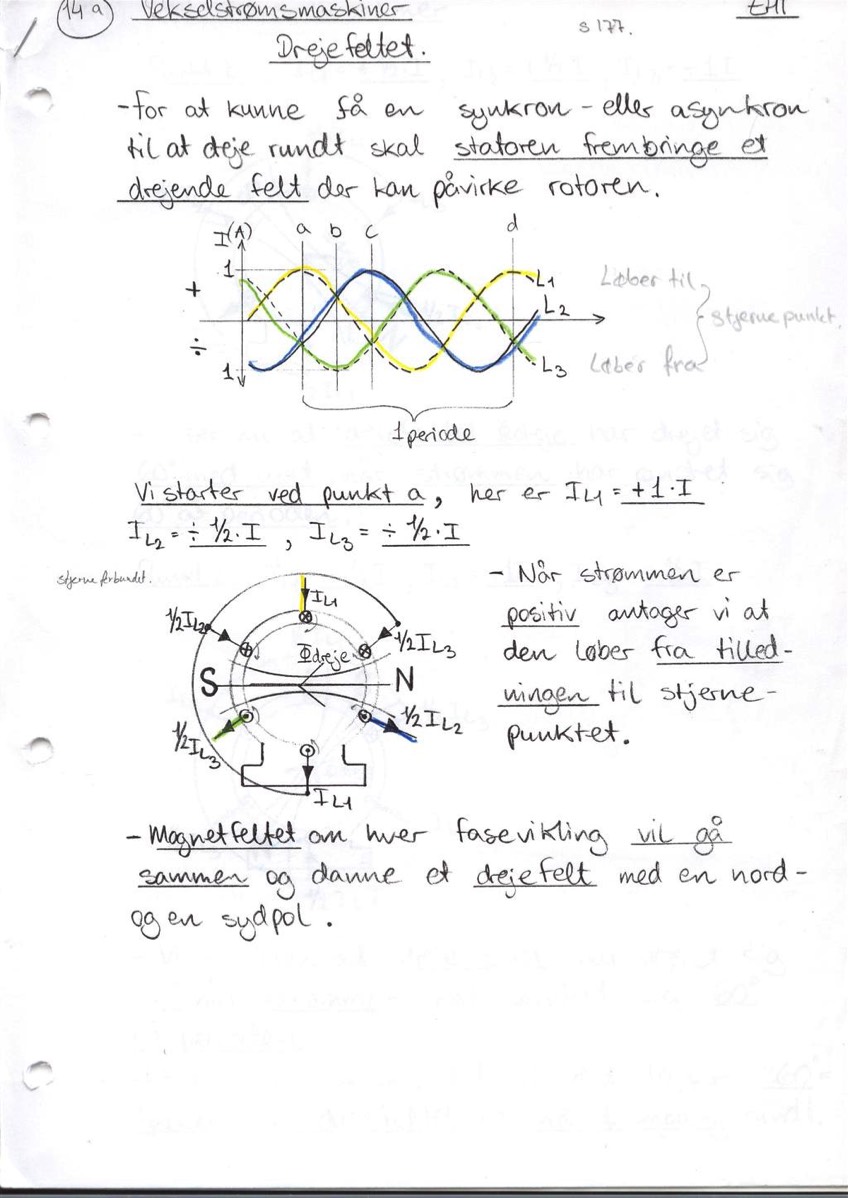 14a) Vekselstrømsmaskiner EM1
s 177.
Drejefeltet.
- For at kunne få en synkron - eller asynkron
til at deje rundt skal statoren frembringe et
drejende felt der kan påvirke rotoren.
I(A) a b c d
1 L1 Løber til
+ L2 stjerne punkt.
÷
1 L3 Løber fra
1 periode
Vi starter ved punkt a, her er IL1 = +1·I
IL2 = ÷ 1/2·I , IL3 = ÷ 1/2·I
stjerne forbundet.
IL1
1/2IL2 1/2IL3
Φdreje
S N
1/2IL3 1/2IL2
IL1
- Når strømmen er
positiv antager vi at
den løber fra tilled-
ningen til stjerne-
punktet.
- Magnetfeltet om hver fasevikling vil gå
sammen og danne et drejefelt med en nord-
og en sydpol.